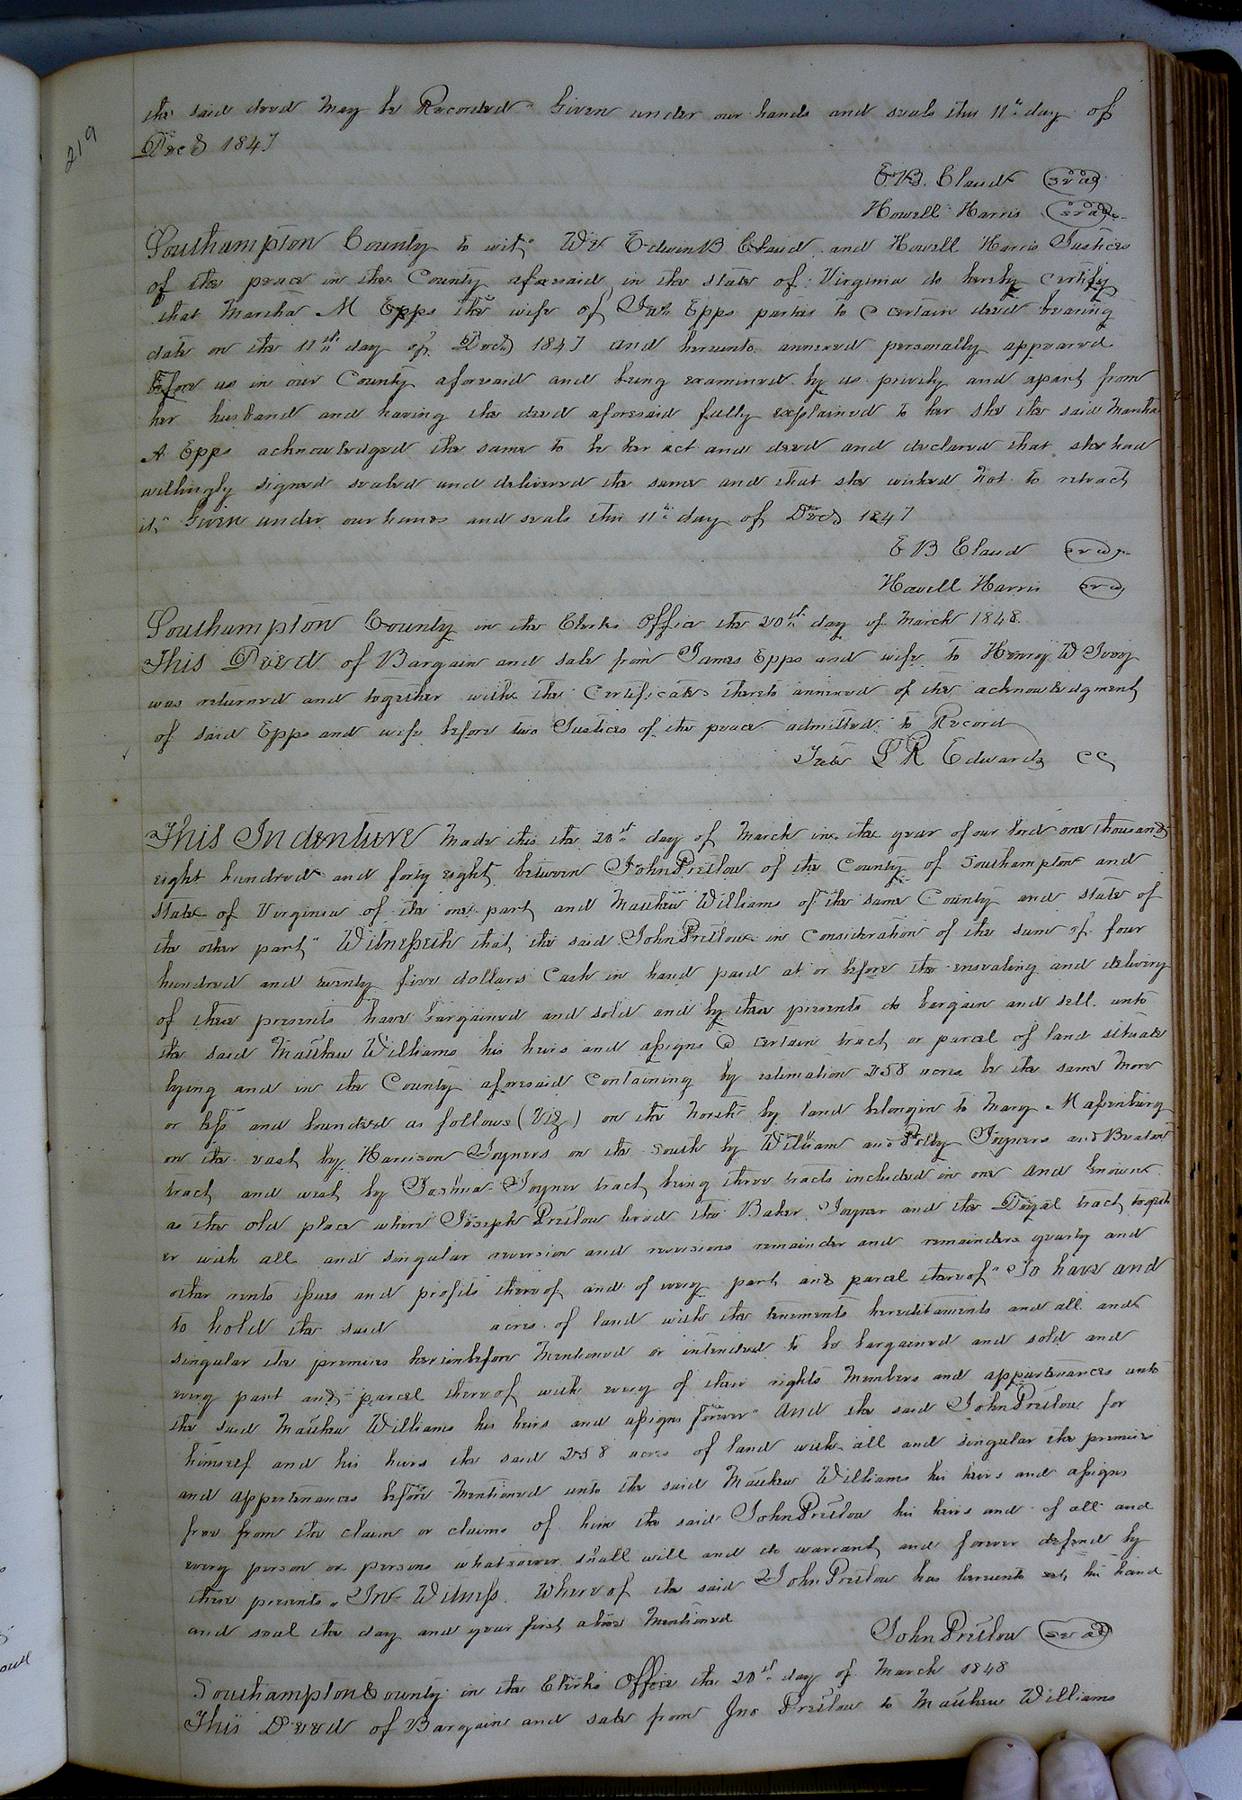 219
the said deed may be Recorded Given under our hands and seals this 11th day of
Decr 1847
E. B. Claud (seal)
Howell Harris (seal)
Southampton County to wit, We Edwin B Claud and Howell Harris Justices
of the peace in the County aforesaid in the state of Virginia do hereby certify
that Martha M Epps the wife of Jas Epps parties to a certain deed bearing
date on the 11th day of Decr 1847 and hereunto annexed personally appeared
before us in our County aforesaid and being examined by us privily and apart from
her husband and having the deed aforesaid fully explained to her she the said Martha
A Epps acknowledged the same to be her act and deed and declared that she had
willingly signed sealed and delivered the same and that she wished not to retract
it, Given under our hands and seals this 11th day of Decr 1847
E B Claud (seal)
Howell Harris (seal)
Southampton County in the Clerks Office the 20th day of March 1848
This Deed of Bargain and sale from James Epps and wife to Henry W Ivey
was returned and together with the Certificates thereto annexed of the acknowledgment
of said Epps and wife before two Justices of the peace admitted to Record
Teste L R Edwards CC
This Indenture made this the 20th day of March in the year of our lord one thousand
eight hundred and forty eight, between John Pretlow of the County of Southampton and
state of Virginia of the one part, and Matthew Williams of the same County and state of
the other part" Witnesseth that, the said John Pretlow in Consideration of the sum of four
hundred and twenty five dollars Cash in hand paid at or before the ensealing and delivery
of these presents have bargained and sold and by these presents do bargain and sell unto
the said Matthew Williams his heirs and assigns a certain tract or parcel of land situate
lying and in the County aforesaid Containing by estimation 258 acres be the same more
or less and bounded as follows (Viz) on the North by land belongin to Mary Massenburg
on the east by Harrison Joyners on the south by William and Joyners and
tract, and west by Joshua Joyner tract, being three tracts included in one and known
as the old place where Joseph Pretlow lived the Baker Joyner and the tract togeth
er with all and singular reversion and reversions remainder and remainders yearly and
other rents issues and profits thereof and of every part and parcel thereof" To have and
to hold the said acres of land with the tenements hereditaments and all and
singular the premises hereinbefore mentioned or intended to be bargained and sold and
every part and parcel thereof with every of their rights members and appurtenances unto
the said Matthew Williams his heirs and assigns forever" And the said John Pretlow for
himself and his heirs the said 258 acres of land with all and singular the premises
and appurtenances before mentioned unto the said Matthew Williams his heirs and assigns
free from the claim or claims of him the said John Pretlow his heirs and of all and
every person or persons whatsoever shall will and do warrant, and forever defend by
these presents. In Witness Whereof the said John Pretlow has hereunto set, his hand
and seal the day and year first above mentioned
John Pretlow (seal)
Southampton County in the Clerks Office the 20th day of March 1848
This Deed of Bargain and sale from Jno Pretlow to Matthew Williams